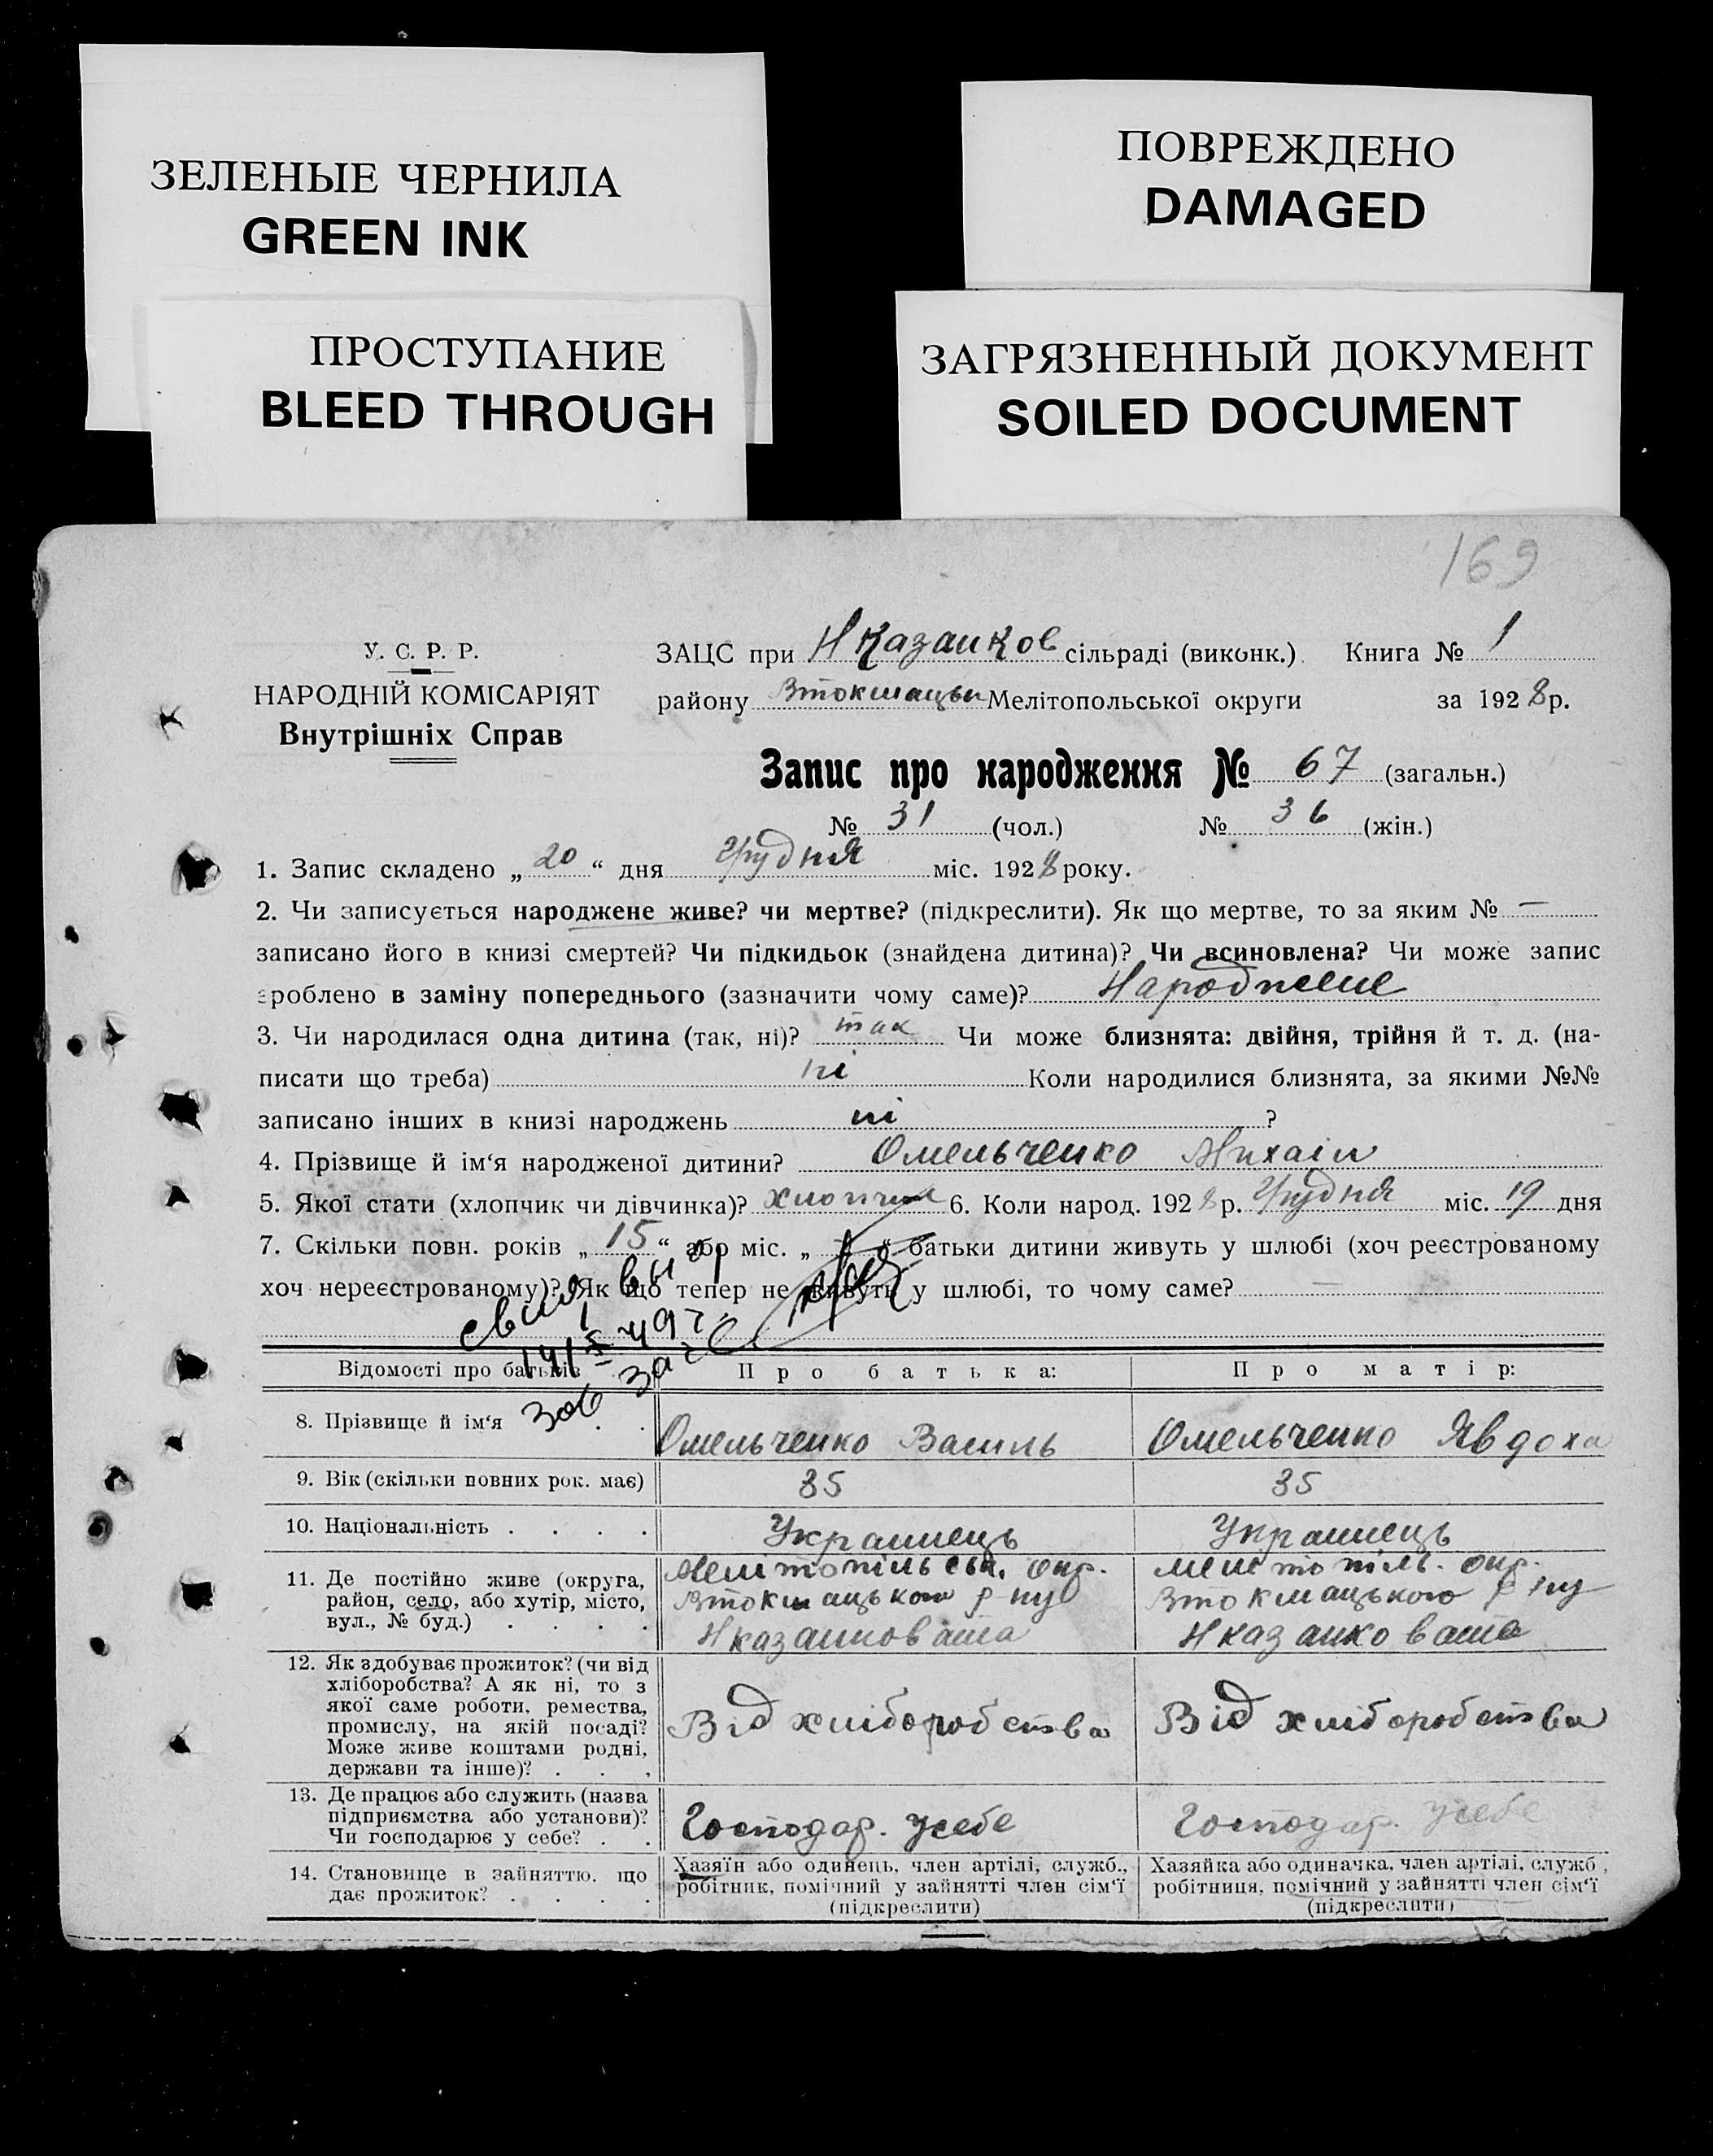 ЗЕЛЕНЫЕ ЧЕРНИЛА
GREEN INK
ПОВРЕЖДЕНО
DAMAGED
ПРОСТУПАНИЕ
BLEED THROUGH
ЗАГРЯЗНЕННЫЙ ДОКУМЕНТ
SOILED DOCUMENT
169
У. С. Р. Р.
НАРОДНІЙ КОМІСАРІЯТ
Внутрішніх Справ
ЗАЦС при Н Казанков сільраді (виконк.) Книга № 1
району Втокмацьк Мелітопольської округи за 1928 р.
Запис про народження № 67 (загальн.)
№ 31 (чол.) № 36 (жін.)
1. Запис складено „ 20 “ дня Грудня міс. 1928 року.
2. Чи записується народжене живе? чи мертве? (підкреслити). Як що мертве, то за яким № —
записано його в книзі смертей? Чи підкидьок (знайдена дитина)? Чи всиновлена? Чи може запис
зроблено в заміну попереднього (зазначити чому саме)? Народжене
3. Чи народилася одна дитина (так, ні)? так Чи може близнята: двійня, трійня й т. д. (на-
писати що треба) ні Коли народилися близнята, за якими №№
записано інших в книзі народжень ні ?
4. Прізвище й ім‘я народженої дитини? Омельченко Михаіл
5. Якої стати (хлопчик чи дівчинка)? хлопчик 6. Коли народ. 1928 р. Грудня міс. 19 дня
7. Скільки повн. років „ 15 “ або міс. „ “ батьки дитини живуть у шлюбі (хоч реєстрованому
хоч нереєстрованому)? Як що тепер не живуть у шлюбі, то чому саме? —
Відомості про батьків Про батька: Про матір:
8. Прізвище й ім‘я . . Омельченко Василь Омельченко Явдоха
9. Вік (скільки повних рок. має) 35 35
10. Національність . . . . Украинець Украинець
11. Де постійно живе (округа,
район, село, або хутір, місто,
вул., № буд.) . . . .
Мелитопільськ. окр.
Втокмацького р-ну
Н казанковата
Мелитопіль. окр.
Втокмацького р-ну
Н казанковата
12. Як здобуває прожиток? (чи від
хліборобства? А як ні, то з
якої саме роботи, ремества,
промислу, на якій посаді?
Може живе коштами родні,
держави та інше)? . . .
Від хліборобства Від хліборобства
13. Де працює або служить (назва
підприємства або установи)?
Чи господарює у себе? . .
Господар. усебе Господар. усебе
14. Становище в зайняттю, що
дає прожиток? . . . .
Хазяїн або одинець, член артілі, служб.,
робітник, помічний у зайнятті член сім‘ї
(підкреслити)
Хазяйка або одиначка, член артілі, служб.,
робітниця, помічний у зайнятті член сім‘ї
(підкреслити)